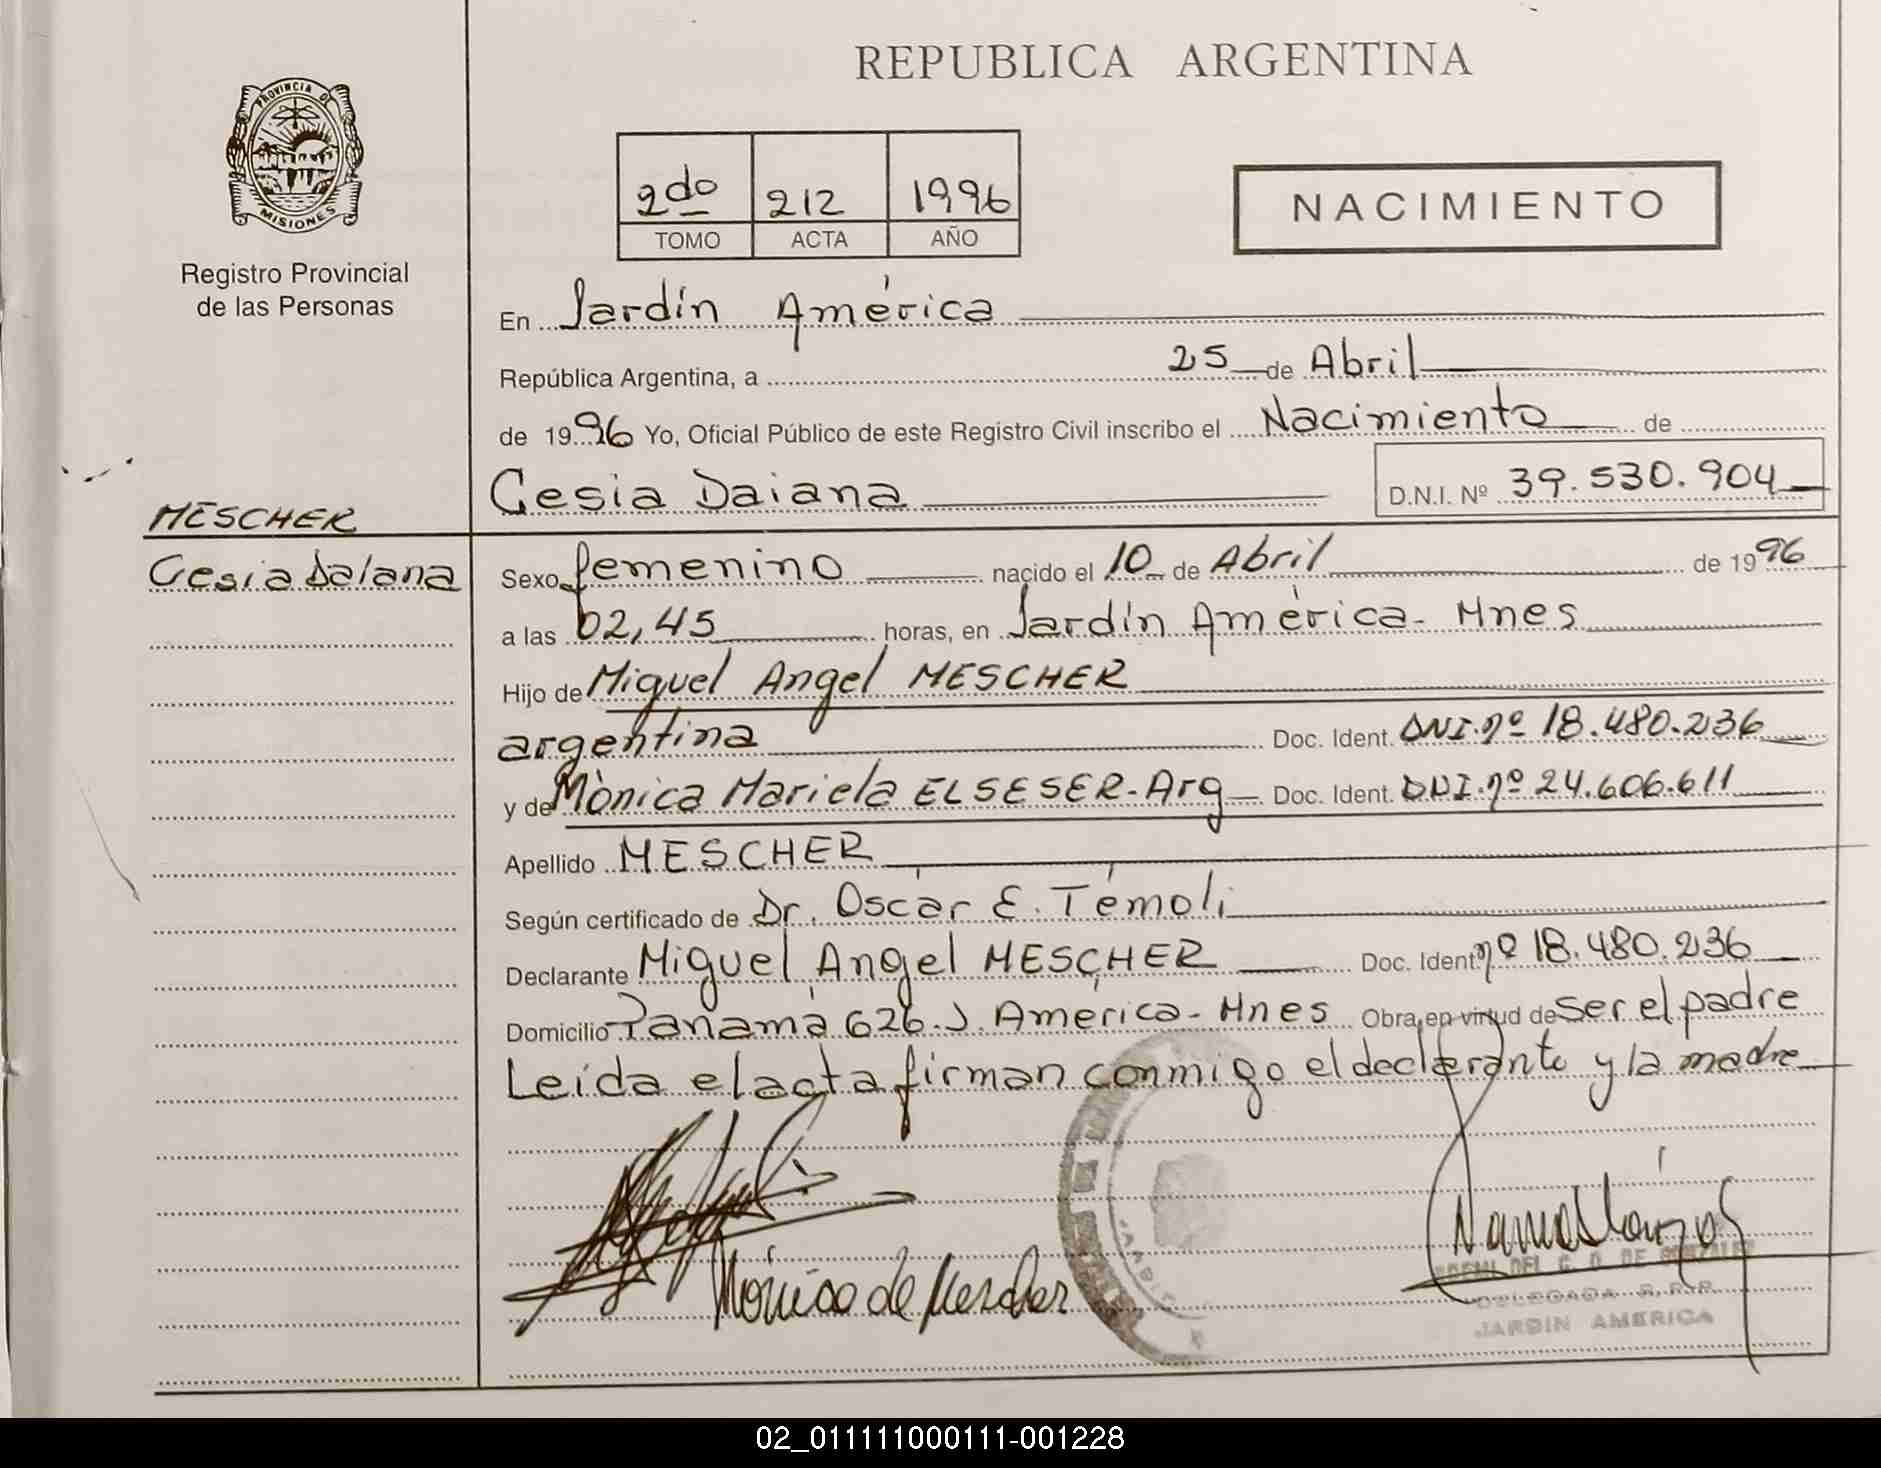 REPUBLICA ARGENTINA
PROVINCIA DE
MISIONES
Registro Provincial
de las Personas
2do 212 1996
TOMO ACTA AÑO
NACIMIENTO
En Jardín América
República Argentina, a 25 de Abril
de 1996 Yo, Oficial Público de este Registro Civil inscribo el Nacimiento de
Gesia Daiana D.N.I. Nº 39.530.904
MESCHER
Gesia Daiana
Sexo femenino nacido el 10 de Abril de 1996
a las 02,45 horas, en Jardín América - Mnes
Hijo de Miguel Angel MESCHER
argentina Doc. Ident. DNI. nº 18.480.236
y de Mònica Mariela ELSESER - Arg Doc. Ident. DNI. nº 24.606.611
Apellido MESCHER
Según certificado de Dr. Oscar E. Témoli
Declarante Miguel Angel MESCHER Doc. Ident. nº 18.480.236
Domicilio Panamá 626. J. América - Mnes Obra en virtud de ser el padre
Leída el acta firman conmigo el declarante y la madre
Mónica de Mescher
DEL C. D. DE GONZALEZ
DELEGADA R.P.P.
JARDIN AMERICA
02_011111000111-001228